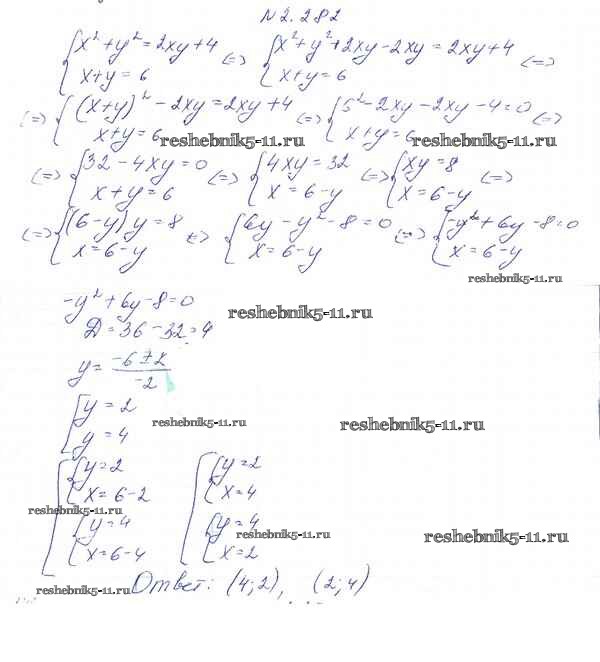 N 2.282
{x²+y²=2xy+4 {x+y=6 <=> {x²+y²+2xy-2xy=2xy+4 {x+y=6 <=>
<=> {(x+y)²-2xy=2xy+4 {x+y=6 <=> {5²-2xy-2xy-4=0 {x+y=6 <=>
reshebnik5-11.ru reshebnik5-11.ru
<=> {32-4xy=0 {x+y=6 <=> {4xy=32 {x=6-y <=> {xy=8 {x=6-y <=>
<=> {(6-y)y=8 {x=6-y <=> {6y-y²-8=0 {x=6-y <=> {-y²+6y-8=0 {x=6-y
reshebnik5-11.ru
-y²+6y-8=0
reshebnik5-11.ru
Д=36-32=4
y=(-6±2)/-2
[y=2
reshebnik5-11.ru reshebnik5-11.ru
[y=4
[{y=2 {x=6-2 [{y=2 {x=4
reshebnik5-11.ru
[{y=4 {x=6-4 [{y=4 {x=2
reshebnik5-11.ru reshebnik5-11.ru
Ответ: (4;2), (2;4)
reshebnik5-11.ru